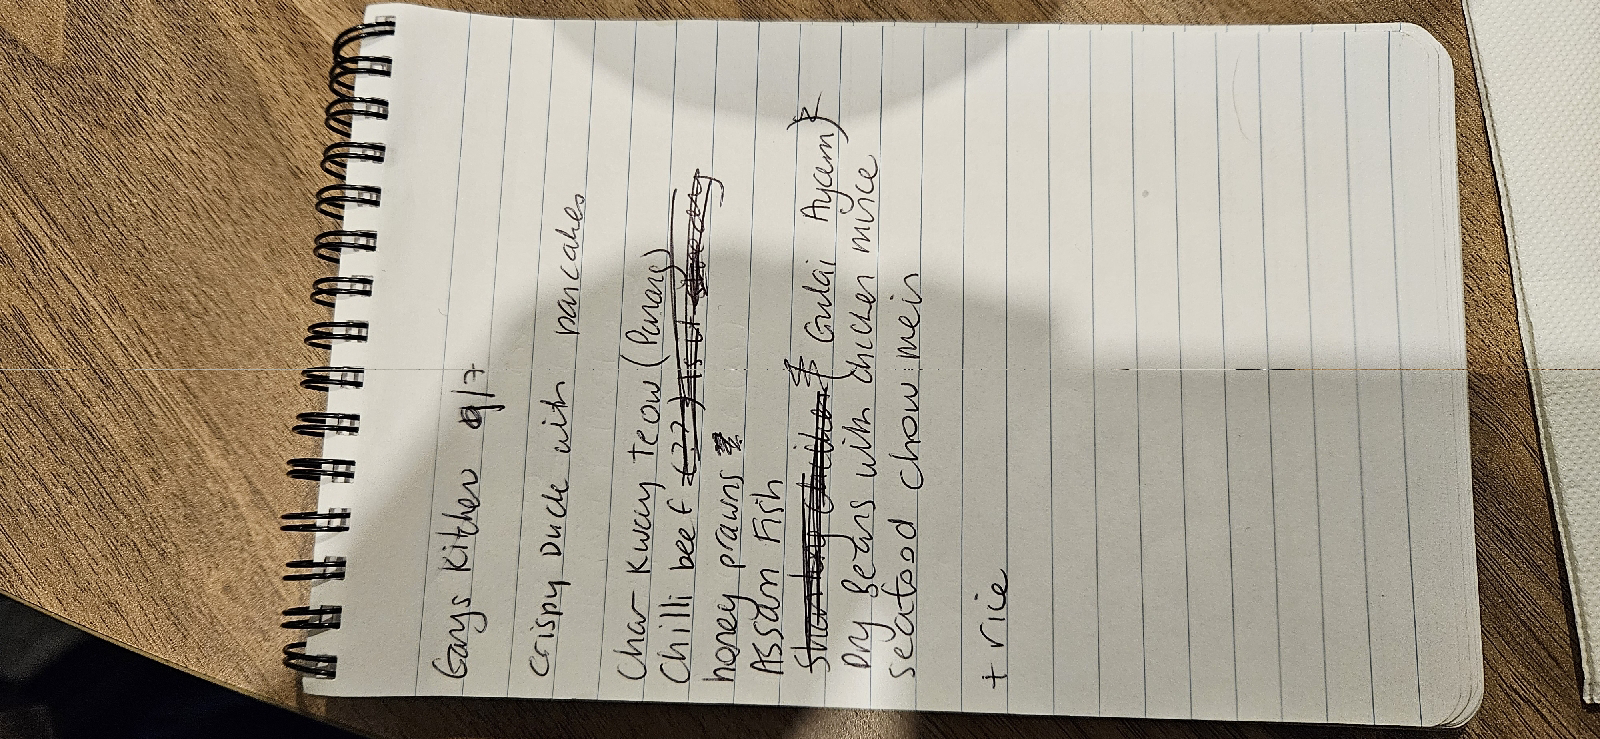 Garys Kitchen 9/7
Crispy Duck with pancakes
Char Kway Teow (Penang)
Chilli beef
honey prawns
Assam Fish
Gulai Ayam
Dry Beans with chicken mince
seafood chow mein
+ rice